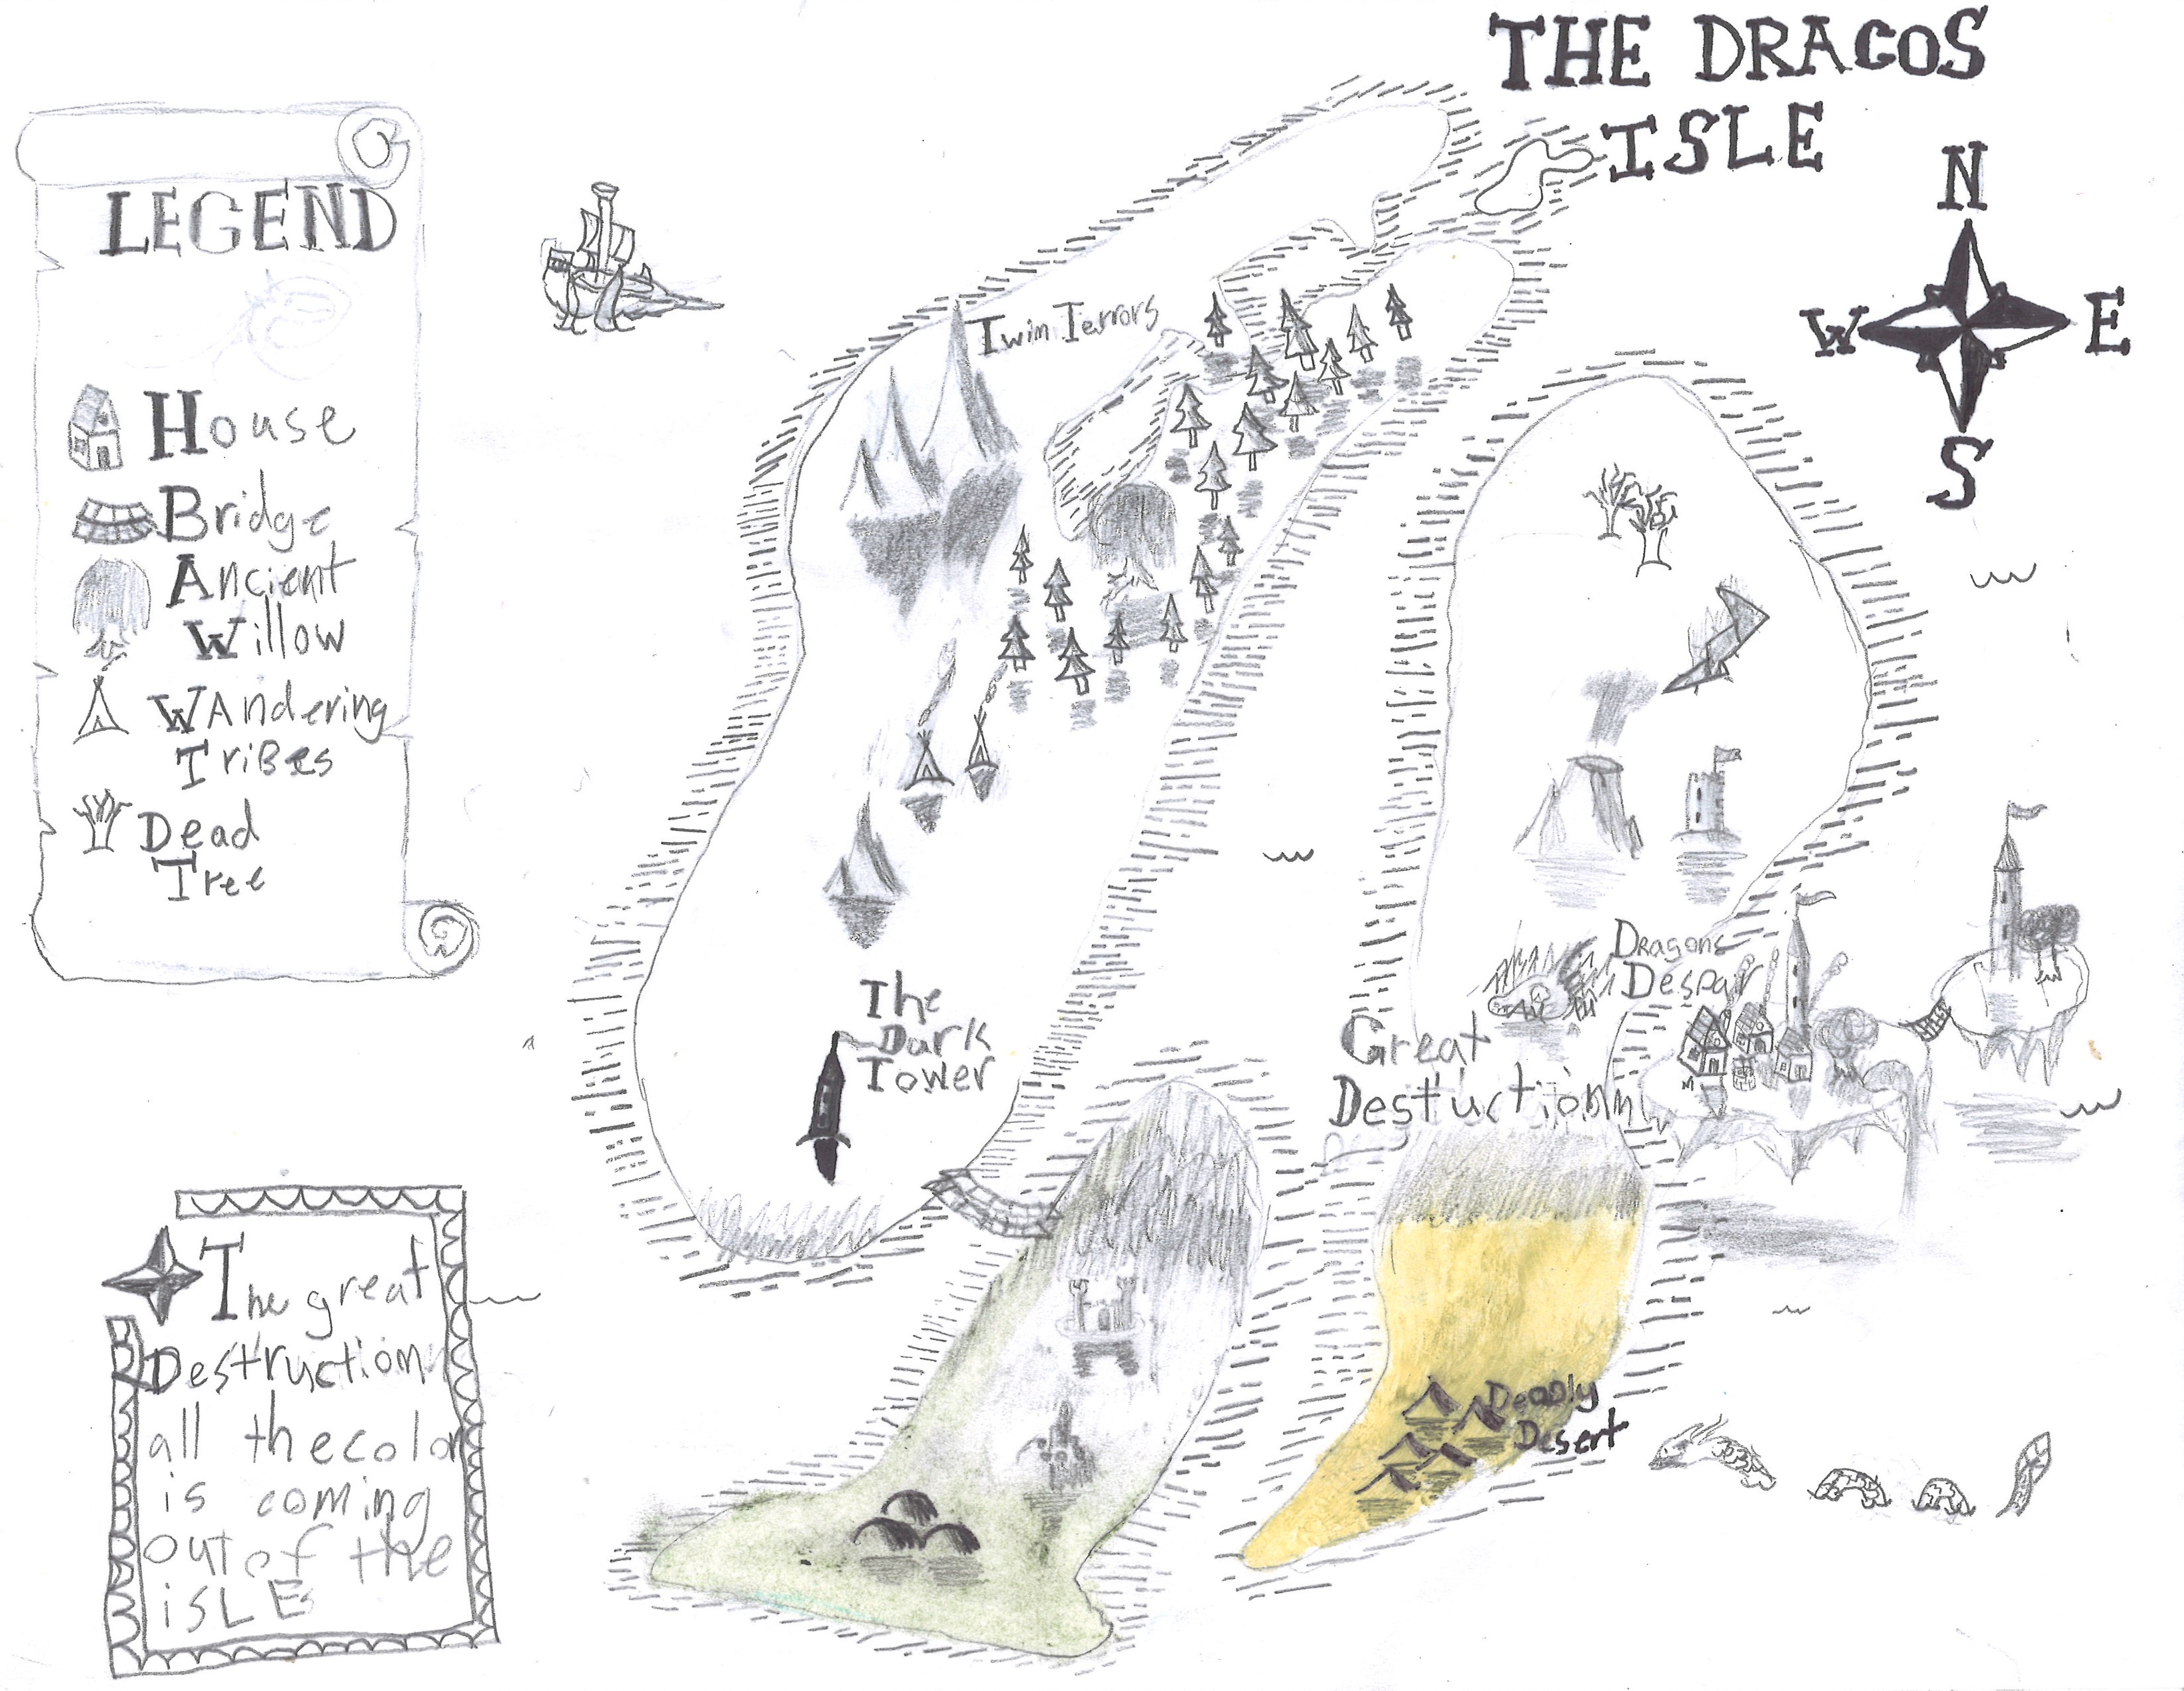 THE DRAGOS
ISLE
N
W
E
S
LEGEND
House
Bridge
Ancient
Willow
WAndering
TriBes
Dead
Tree
Twin Terrors
The
Dark
Tower
Dragons
Despair
Great
Destuction
Deadly
Desert
The great
Destruction
all the color
is coming
out of the
iSLE